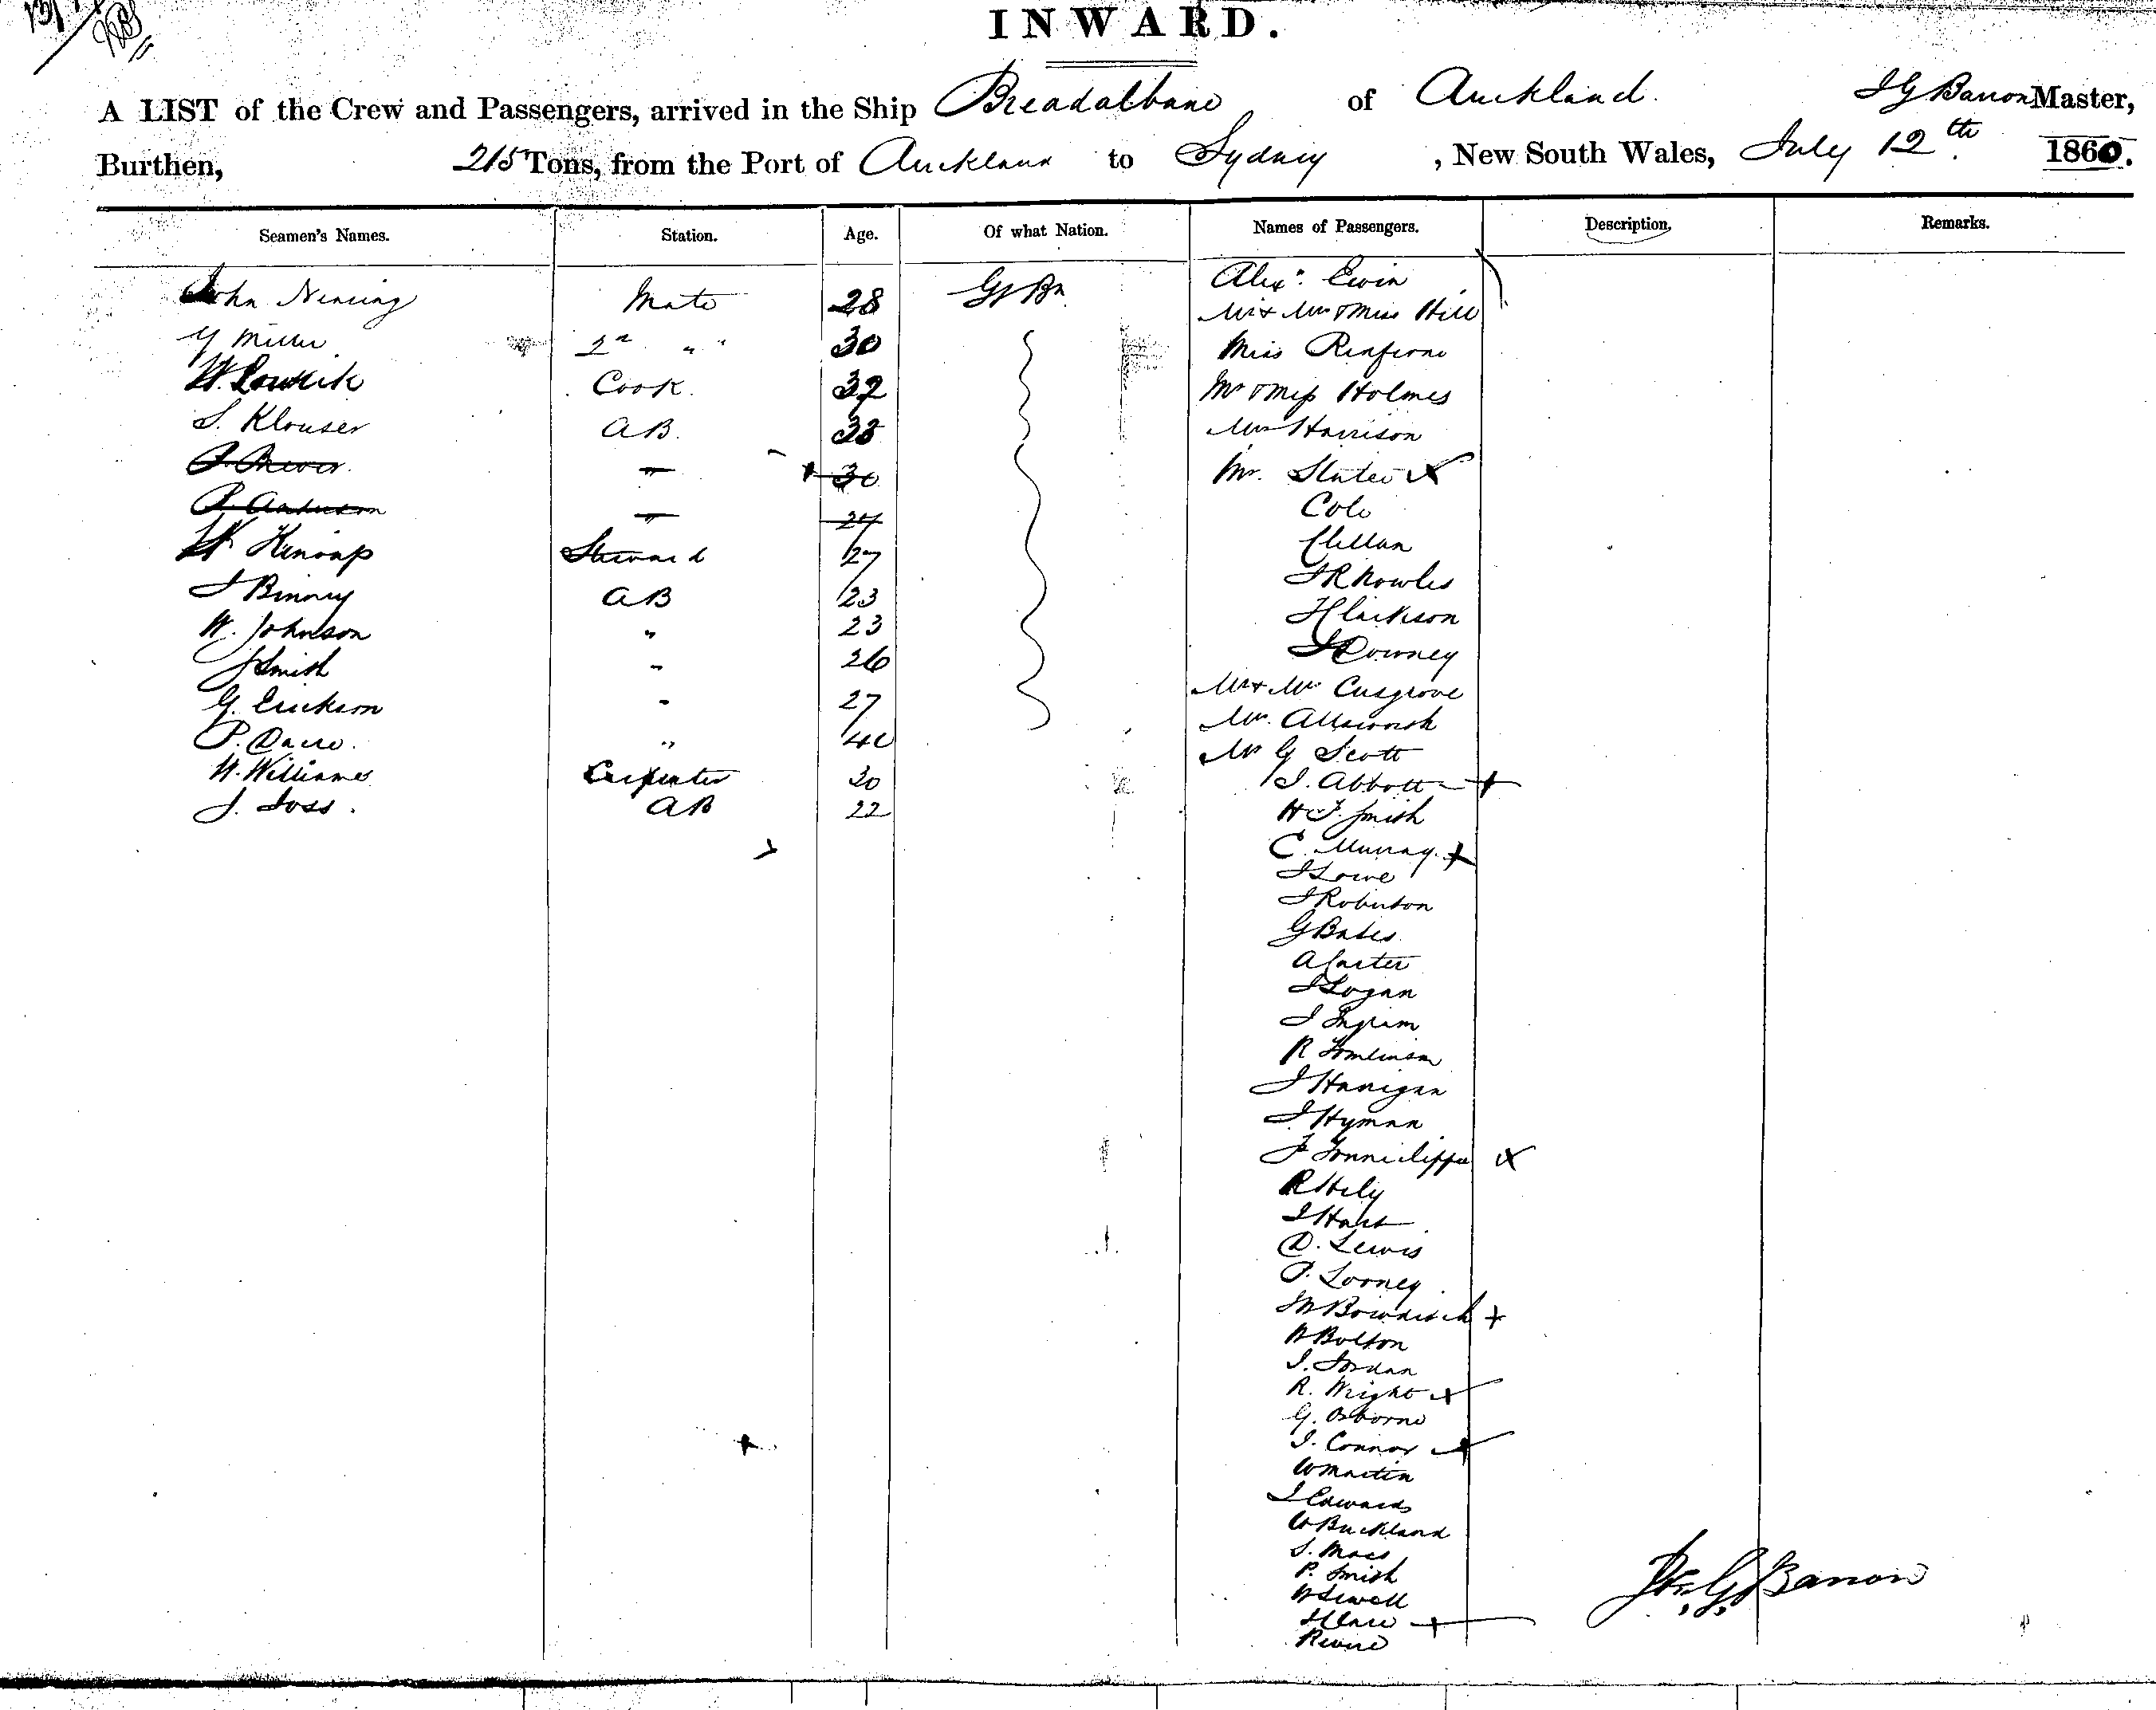 INWARD.
A LIST of the Crew and Passengers, arrived in the Ship Breadalbane of Auckland. J G Barron Master,
Burthen, 215 Tons, from the Port of Auckland to Sydney, New South Wales, July 12th 1860.
Seamen's Names. Station. Age. Of what Nation. Names of Passengers. Description. Remarks.
John Mate 28 Gt Bn Alexr. Ewin
G Miller 2nd " " 30 Mr & Mrs & Miss Hill
W. Cook 32 Miss
S. Klouser AB. 38 Mr & Miss Holmes
30 Mrs Harrison
P. Anderson 27 Mr. Slater x
W Steward 27 Cole
J Binney AB 23 Clellan
W. Johnson " 23 J R Knowles
J Smith " 26 H Clarkson
G. Erickson " 27 J Downey
P. Dacre. " 40 Mr & Mrs Cusgrove
W. Williams Carpenter 30 Mr. Allsworth
J. Joss. AB 22 Mr G Scott
J. Abbott +
H F. Smith
C. Murray. +
J Lowe
J Robertson
G Bates
A Carter
J Logan
J Ingram
R Tomlinson
J Hanigan
J Hyman
J x
R Hely
J Hart
D. Lewis
P. Looney
Bowditch +
W Bolton
J. Jordan
R. Wright x
G. Osborne
J. Connor x
W Martin
J Edwards
W Buckland
S. Moes
P. Smith
W Sewell
H Clare +
Jn. G. Barron